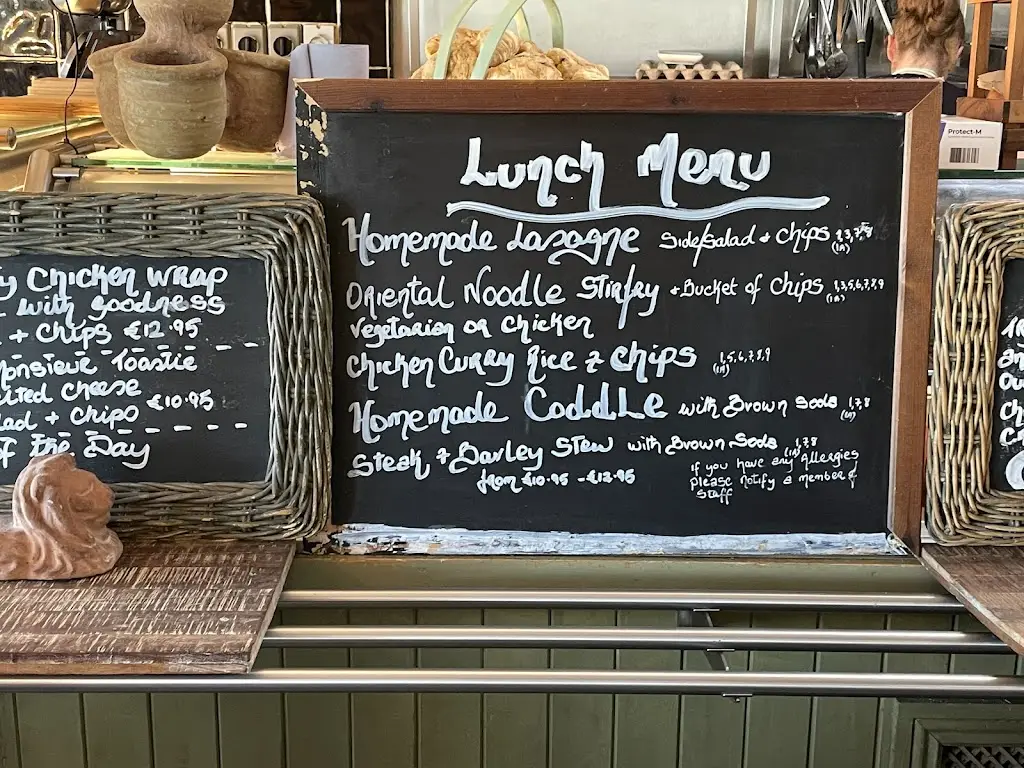 Lunch Menu
Homemade Lasagne Side/Salad + Chips
Oriental Noodle Stirfry + Bucket of Chips 1,3,5,6,7,8,9
Vegetarian or Chicken
Chicken Curry Rice & Chips 1,5,6,7,8,9
Homemade Coddle with Brown Soda 1,7,8
Steak & Barley Stew with Brown Soda 1,7,8
from €10.95 - €12.95
If you have any Allergies
please notify a member of
staff
y Chicken Wrap
with goodness
+ Chips €12.95
onsieur Toastie
lted cheese
lad + Chips €10.95
of the Day
Protect-M